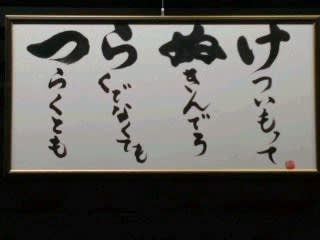 けついもって
ぬきんでろ
らくでなくても
つらくとも